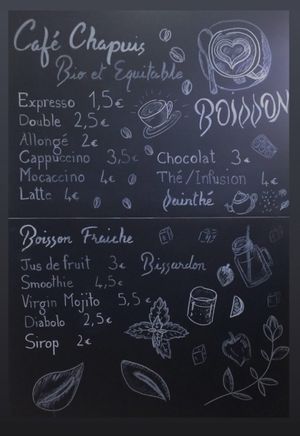 Café Chapuis
Bio et Equitable
BOISSON
Expresso 1,5€
Double 2,5€
Allongé 2€
Cappuccino 3,5€
Mocaccino 4€
Latte 4€
Chocolat 3€
Thé/Infusion 4€
Boisson Fraiche
Jus de fruit 3€
Smoothie 4,5€
Virgin Mojito 5,5€
Diabolo 2,5€
Sirop 2€
Bissardon